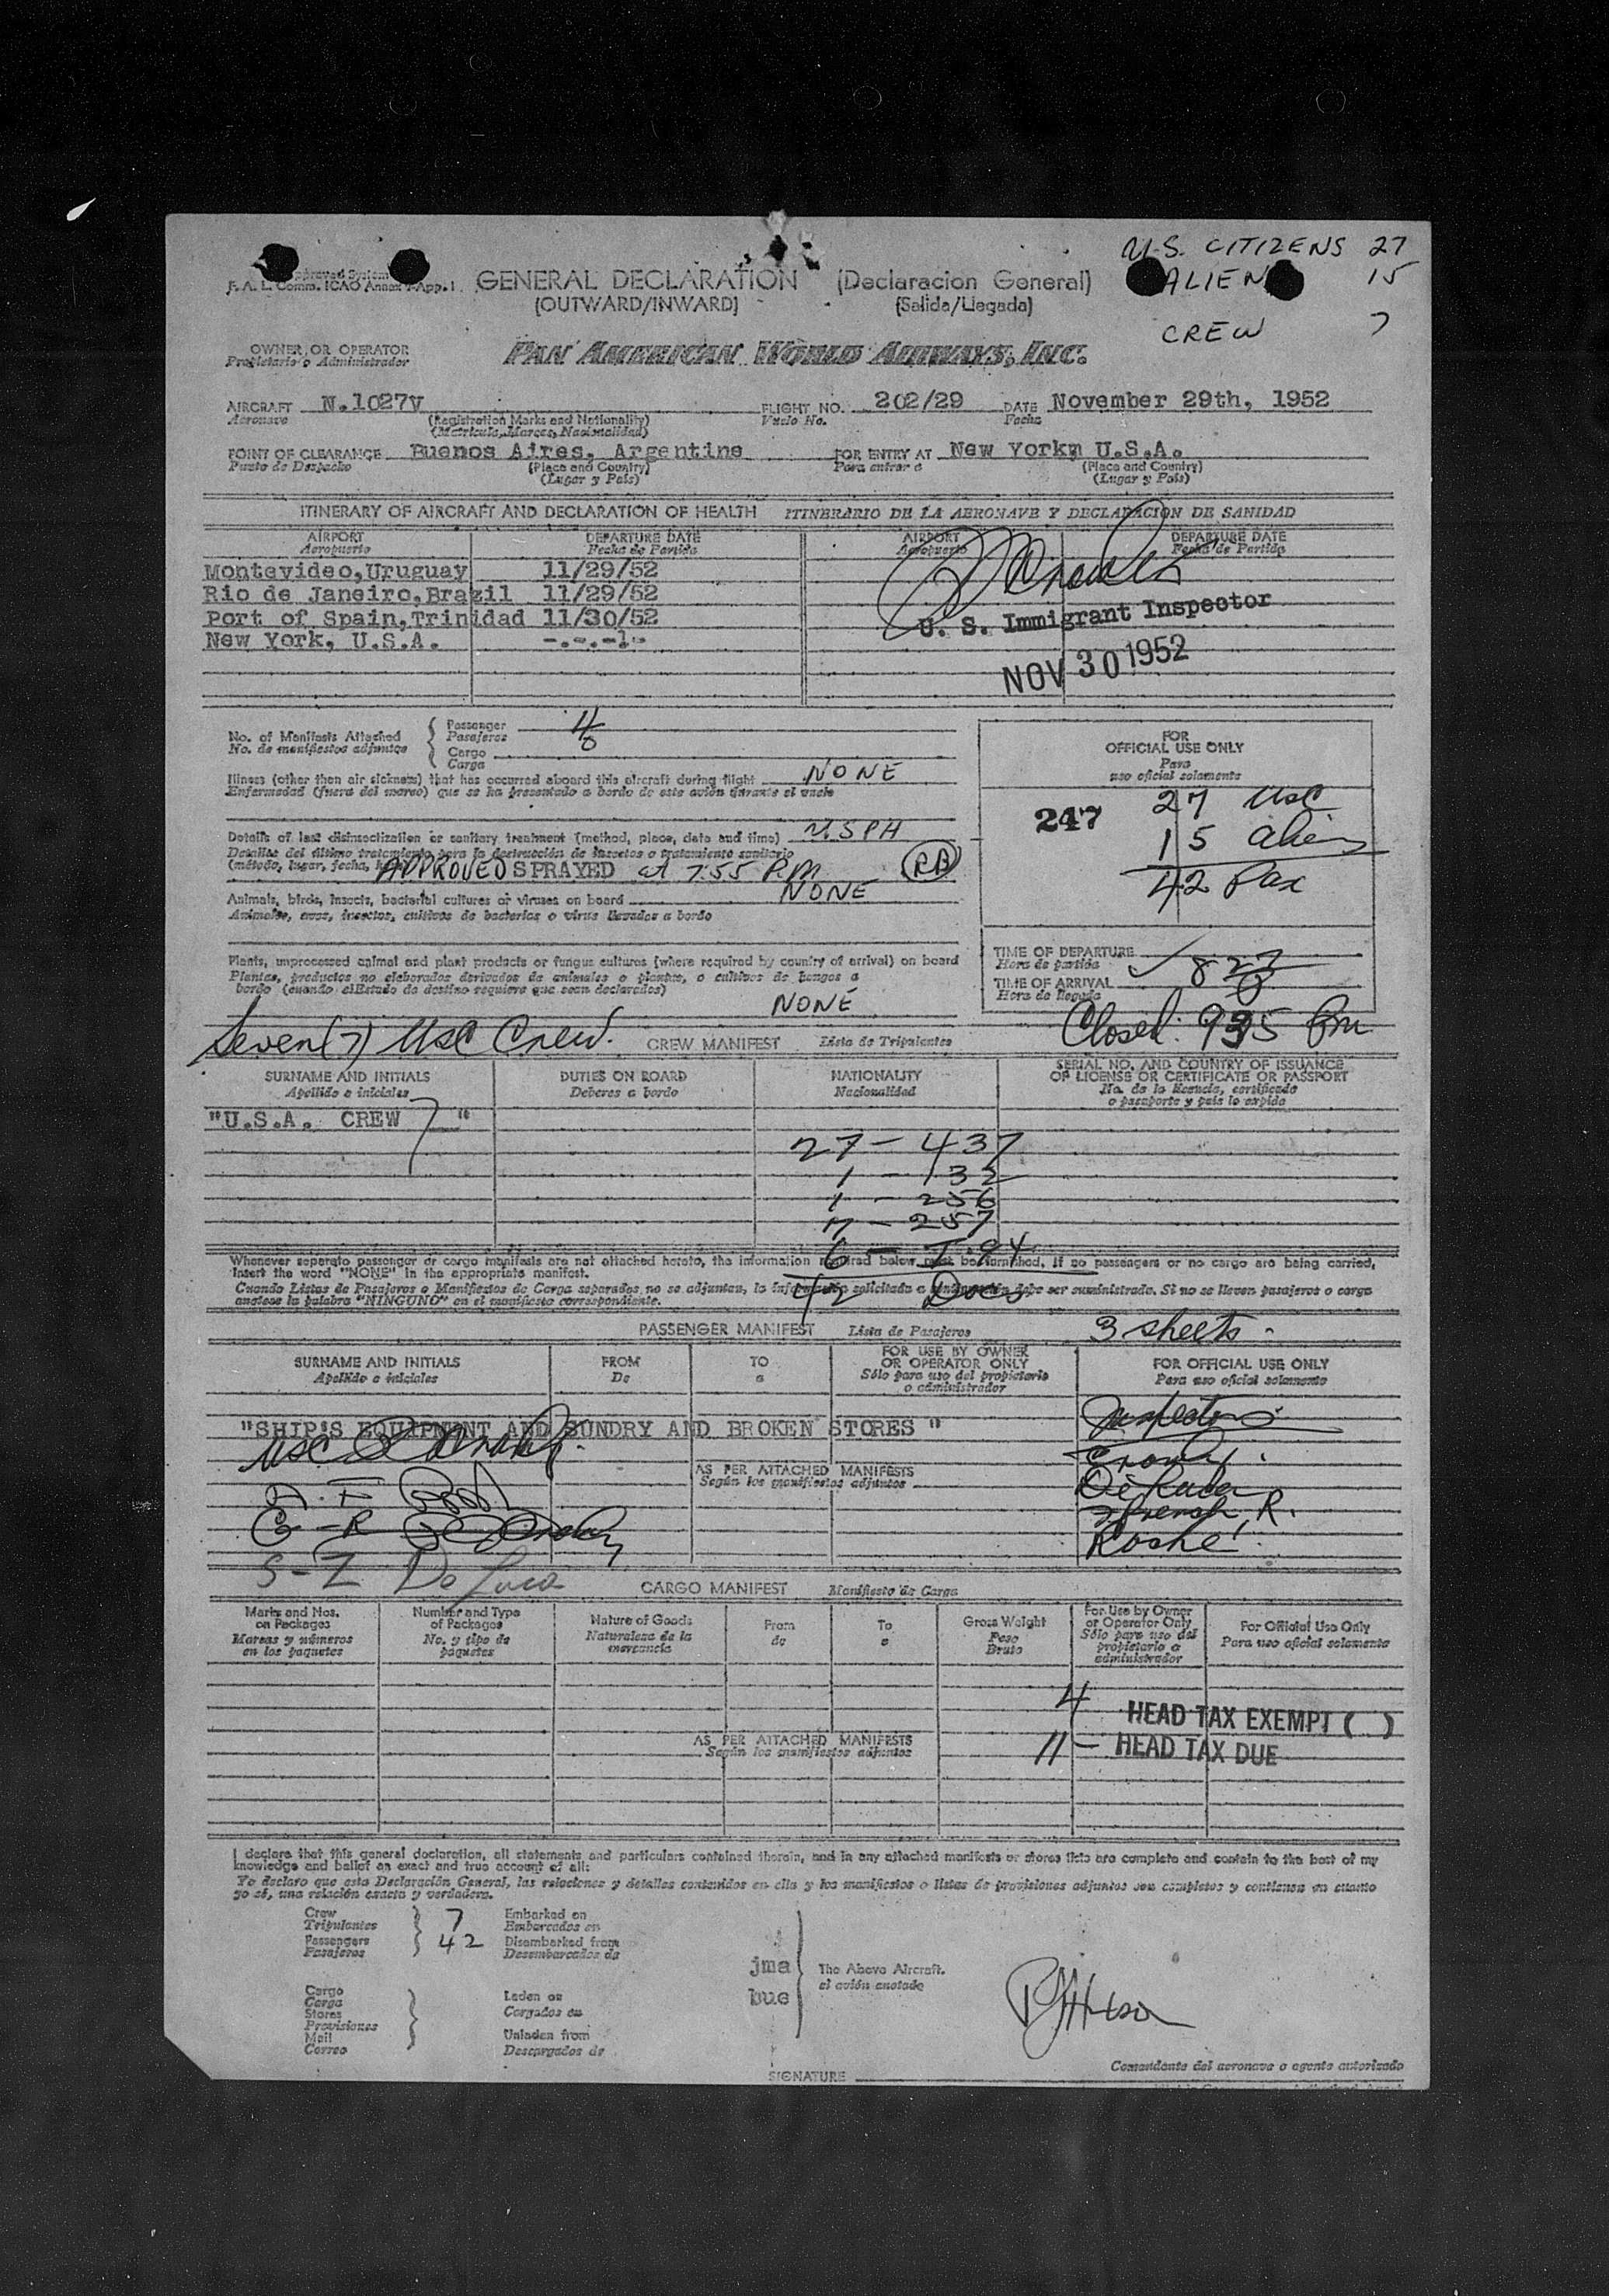 U.S. CITIZENS 27
ALIEN 15
CREW 7
F. A. L. Comm. ICAO Annex
GENERAL DECLARATION (Declaracion General)
(OUTWARD/INWARD) (Salida/Llegada)
OWNER OR OPERATOR
Propietario o Administrador
PAN AMERICAN WORLD AIRWAYS, INC.
AIRCRAFT N.1027V FLIGHT NO. 202/29 DATE November 29th, 1952
Aeronave (Registration Marks and Nationality) Vuelo No. Fecha
(Matricula, Marcas, Nacionalidad)
POINT OF CLEARANCE Buenos Aires, Argentina FOR ENTRY AT New York, U.S.A.
Punto de Despacho (Place and Country) Para entrar a (Place and Country)
(Lugar y País) (Lugar y País)
ITINERARY OF AIRCRAFT AND DECLARATION OF HEALTH ITINERARIO DE LA AERONAVE Y DECLARACION DE SANIDAD
AIRPORT DEPARTURE DATE AIRPORT DEPARTURE DATE
Aeropuerto Fecha de Partida Aeropuerto Fecha de Partida
Montevideo,Uruguay 11/29/52
Rio de Janeiro,Brazil 11/29/52
Port of Spain,Trinidad 11/30/52
New York, U.S.A.
U. S. Immigrant Inspector
NOV 30 1952
No. of Manifests Attached
No. de manifiestos adjuntos
Passenger 4
Pasajeros
Cargo 0
Carga
Illness (other than air sickness) that has occurred aboard this aircraft during flight NONE
Enfermedad (fuera del mareo) que se ha presentado a bordo de este avión durante el vuelo
Details of last disinsectization or sanitary treatment (method, place, date and time) U.S.P.H
Detalles del último tratamiento para la destrucción de insectos o tratamiento sanitario
(método, lugar, fecha,
APPROVED SPRAYED at 7.55 P.M. RB
Animals, birds, insects, bacterial cultures or viruses on board NONE
Animales, aves, insectos, cultivos de bacterias o virus llevados a bordo
Plants, unprocessed animal and plant products or fungus cultures (where required by country of arrival) on board
Plantas, productos no elaborados derivados de animales o plantas, o cultivos de hongos a
bordo (cuando el Estado de destino requiere que sean declarados)
NONE
FOR
OFFICIAL USE ONLY
Para
uso oficial solamente
247
27 USC
15 alien
42 Pax
TIME OF DEPARTURE
Hora de partida
TIME OF ARRIVAL
Hora de llegada
Closed: 935 Pm
Seven (7) USC Crew.
CREW MANIFEST Lista de Tripulantes
SURNAME AND INITIALS DUTIES ON BOARD NATIONALITY SERIAL NO. AND COUNTRY OF ISSUANCE
OF LICENSE OR CERTIFICATE OR PASSPORT
Apellido e iniciales Deberes a bordo Nacionalidad No. de la licencia, certificado
o pasaporte y país lo expida
"U.S.A. CREW 7 "
27 - 437
1 - 132
1 - 256
7 - 257
6 - I-94
42 Docs
Whenever separate passenger or cargo manifests are not attached hereto, the information required below must be furnished. If no passengers or no cargo are being carried,
insert the word "NONE" in the appropriate manifest.
Cuando Listas de Pasajeros o Manifiestos de Carga separados no se adjuntan, la información solicitada a continuación debe ser suministrada. Si no se llevan pasajeros o carga
anótese la palabra "NINGUNO" en el manifiesto correspondiente.
PASSENGER MANIFEST Lista de Pasajeros 3 sheets.
SURNAME AND INITIALS FROM TO FOR USE BY OWNER
OR OPERATOR ONLY FOR OFFICIAL USE ONLY
Apellido e iniciales De a Sólo para uso del propietario
o administrador Para uso oficial solamente
"SHIP'S EQUIPMENT AND SUNDRY AND BROKEN STORES "
Inspectors
USC
AS PER ATTACHED MANIFESTS
Según los manifiestos adjuntos
A - F
G - R
S - Z De Luca
De Luca
French, R.
Roshé
CARGO MANIFEST Manifiesto de Carga
Marks and Nos.
on Packages
Marcas y números
en los paquetes
Number and Type
of Packages
No. y tipo de
paquetes
Nature of Goods
Naturaleza de la
mercancía
From
de
To
a
Gross Weight
Peso
Bruto
For Use by Owner
or Operator Only
Sólo para uso del
propietario o
administrador
For Official Use Only
Para uso oficial solamente
4 HEAD TAX EXEMPT ( )
11 - HEAD TAX DUE
AS PER ATTACHED MANIFESTS
Según los manifiestos adjuntos
I declare that this general declaration, all statements and particulars contained therein, and in any attached manifests or stores lists are complete and contain to the best of my
knowledge and belief an exact and true account of all:
Yo declaro que esta Declaración General, las relaciones y detalles contenidos en ella y los manifiestos o listas de provisiones adjuntos son completos y contienen en cuanto
yo sé, una relación exacta y verdadera.
Crew 7 Embarked on
Tripulantes Embarcados en
Passengers 42 Disembarked from
Pasajeros Desembarcados de
jma
bue
The Above Aircraft.
el avión anotado
Cargo
Carga
Stores
Provisiones
Mail
Correo
Laden on
Cargados en
Unladen from
Descargados de
Comandante del aeronave o agente autorizado
SIGNATURE